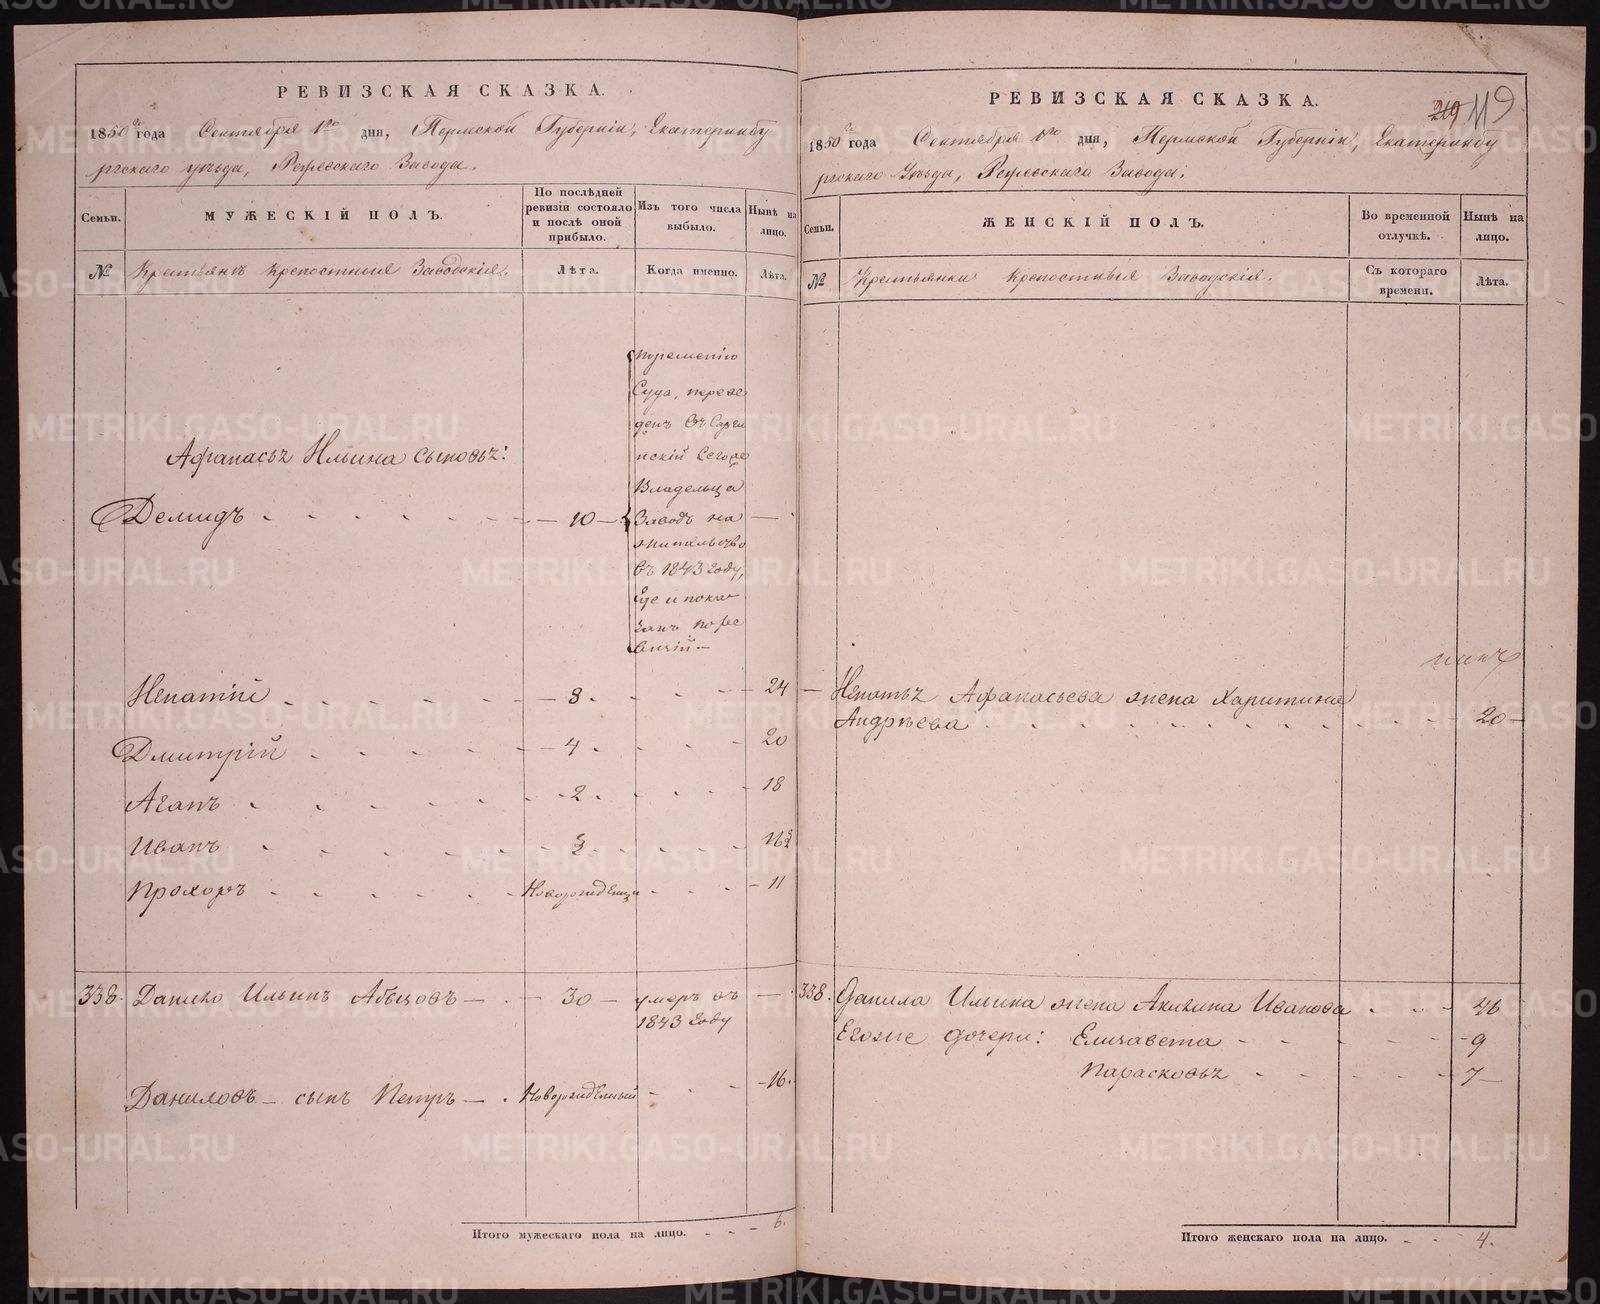 РЕВИЗСКАЯ СКАЗКА.
1850 го года Сентября 1го дня, Пермской Губерніи, Екатеринбу
ргскаго уѣзда, Режевскаго Завода.
Семьи.
МУЖЕСКІЙ ПОЛЪ.
По послѣдней ревизіи состояло и послѣ оной прибыло.
Изъ того числа выбыло.
Нынѣ на лицо.
№
Крестьянъ крепостныя Заводскія.
Лѣта.
Когда именно.
Лѣта.
порешенію
Суда, переве
денъ въ Серги
нскій Сегоже
Владельца
Заводъ на
жительство
въ 1843 году,
где и пока
занъ поре
визій.—
Афанасьъ Ильина сыновьъ:
Демидъ — 10 — —
Ипатій — 8. — 24 —
Дмитрій — 4. — 20
Агапъ — 2. — 18
Иванъ — ½ — 16½
Прохоръ — Новорожденны — 11
338. Данило Ильинъ Абызовъ — 30 — умеръ въ —
1843 году
Даниловъ — сынъ Петръ — Новорожденный — 16.
Итого мужескаго пола на лицо. 6.
РЕВИЗСКАЯ СКАЗКА.
219 119
1850 го года Сентября 1го дня, Пермской Губерніи, Екатеринбу
ргскаго Уѣзда, Режевскаго Завода;
Семьи.
ЖЕНСКІЙ ПОЛЪ.
Во временной отлучкѣ.
Нынѣ на лицо.
№
Крестьянки крепостныя Заводскія.
Съ котораго времени.
Лѣта.
Ипатьъ Афанасьева жена Харитина
Андрѣева 20 —
338. Данила Ильина жена Акилина Иванова 46
Егоже дочери: Елизавета — 9
Парасковьъ — 7 —
Итого женскаго пола на лицо. 4.
METRIKI.GASO-URAL.RU